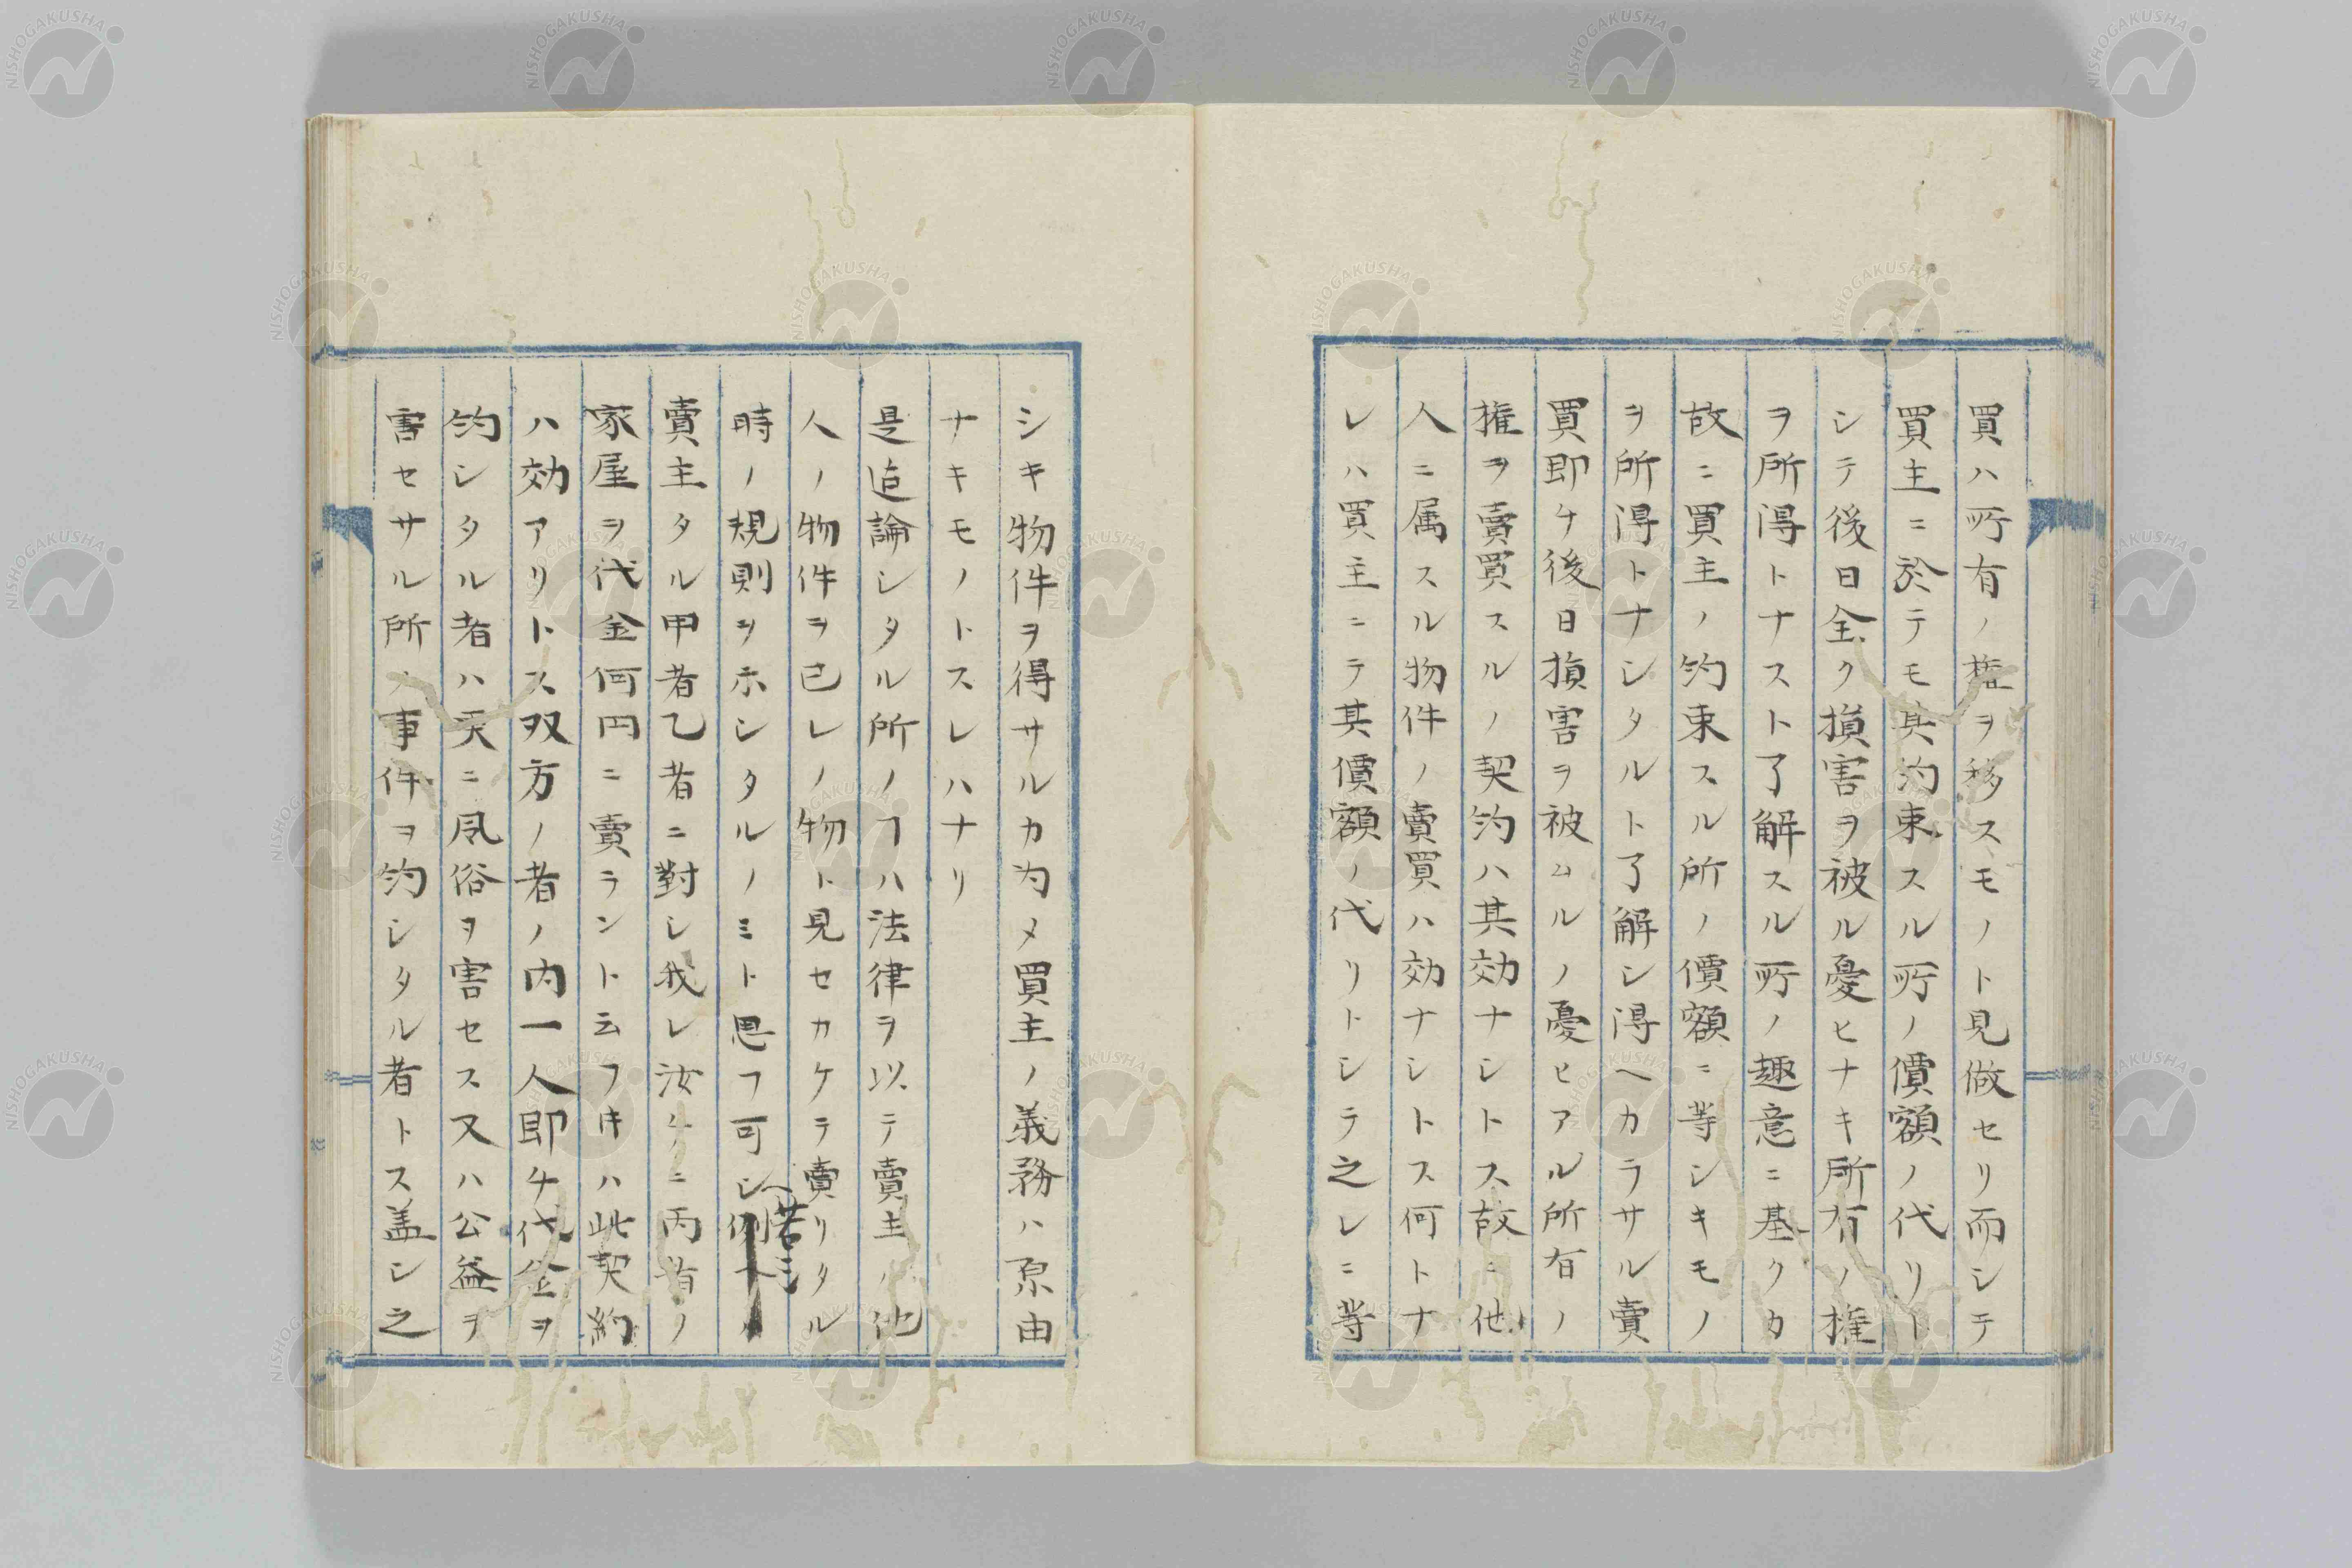 買ハ所有ノ権ヲ移スモノト見做セリ而シテ
買主ニ於テモ其約束スル所ノ價額ノ代リト
シテ後日全ク損害ヲ被ル憂ヒナキ所有ノ権
ヲ所得トナスト了解スル所ノ趣意ニ基クカ
故ニ買主ノ約束スル所ノ價額ニ等シキモノ
ヲ所得トナシタルト了解シ得ヘカラサル賣
買即チ後日損害ヲ被ムルノ憂ヒアル所有ノ
権ヲ賣買スルノ契約ハ其効ナシトス故ニ他
人ニ属スル物件ノ賣買ハ効ナシトス何トナ
レハ買主ニテ其價額ノ代リトシテ之レニ等
シキ物件ヲ得サルカ為メ買主ノ義務ハ原由
ナキモノトスレハナリ
是迠論シタル所ノヿハ法律ヲ以テ賣主ノ他
人ノ物件ヲ己レノ物ト見セカケテ賣リタル
時ノ規則ヲ示シタルノミト思フ可シ若シ
賣主タル甲者乙者ニ對シ我レ汝チニ丙者ノ
家屋ヲ代金何円ニ賣ラント云フ𪜈ハ此契約
ハ効アリトス双方ノ者ノ内一人即チ代金ヲ
約シタル者ハ天ニ風俗ヲ害セス又ハ公益ヲ
害セサル所ノ事件ヲ約シタル者トス盖シ之
NISHOGAKUSHA